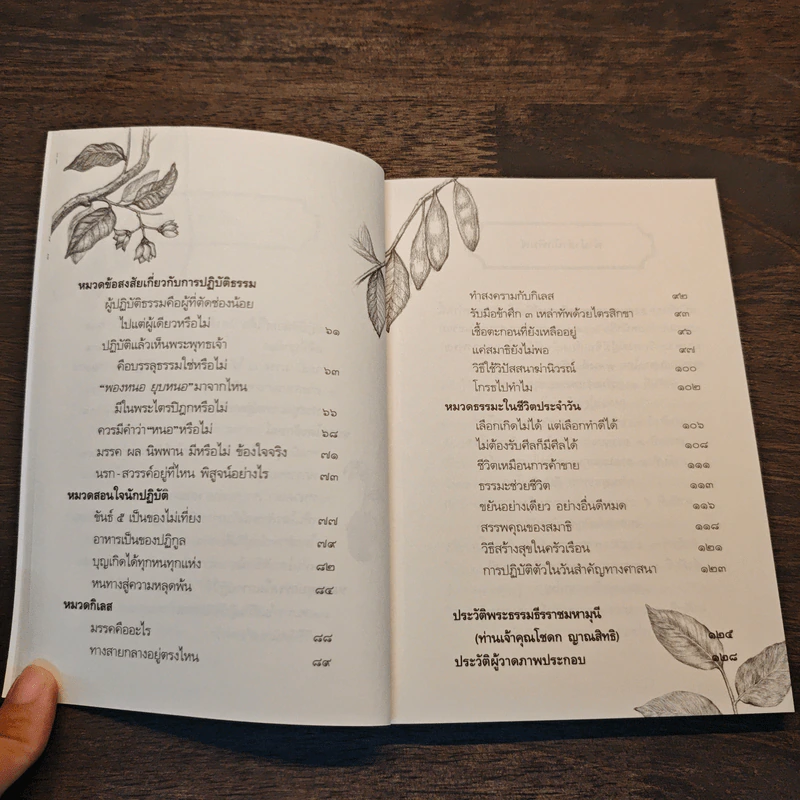 หมวดข้อสงสัยเกี่ยวกับการปฏิบัติธรรม
ผู้ปฏิบัติธรรมคือผู้ที่ตัดช่องน้อย
ไปแต่ผู้เดียวหรือไม่ ๖๑
ปฏิบัติแล้วเห็นพระพุทธเจ้า
คือบรรลุธรรมใช่หรือไม่ ๖๓
“พองหนอ ยุบหนอ”มาจากไหน
มีในพระไตรปิฎกหรือไม่ ๖๖
ควรมีคำว่า“หนอ”หรือไม่ ๖๘
มรรค ผล นิพพาน มีหรือไม่ ข้องใจจริง ๗๑
นรก-สวรรค์อยู่ที่ไหน พิสูจน์อย่างไร ๗๓
หมวดสอนใจนักปฏิบัติ
ขันธ์ ๕ เป็นของไม่เที่ยง ๗๗
อาหารเป็นของปฏิกูล ๗๙
บุญเกิดได้ทุกหนทุกแห่ง ๘๒
หนทางสู่ความหลุดพ้น ๘๔
หมวดกิเลส
มรรคคืออะไร ๘๘
ทางสายกลางอยู่ตรงไหน ๘๙
ทำสงครามกับกิเลส ๙๒
รับมือข้าศึก ๓ เหล่าทัพด้วยไตรสิกขา ๙๓
เชื้อตะกอนที่ยังเหลืออยู่ ๙๖
แค่สมาธิยังไม่พอ ๙๗
วิธีใช้วิปัสสนาฆ่านิวรณ์ ๑๐๐
โกรธไปทำไม ๑๐๒
หมวดธรรมะในชีวิตประจำวัน
เลือกเกิดไม่ได้ แต่เลือกทำดีได้ ๑๐๖
ไม่ต้องรับศีลก็มีศีลได้ ๑๐๘
ชีวิตเหมือนการค้าขาย ๑๑๑
ธรรมะช่วยชีวิต ๑๑๓
ขยันอย่างเดียว อย่างอื่นดีหมด ๑๑๖
สรรพคุณของสมาธิ ๑๑๘
วิธีสร้างสุขในครัวเรือน ๑๒๑
การปฏิบัติตัวในวันสำคัญทางศาสนา ๑๒๓
ประวัติพระธรรมธีรราชมหามุนี
(ท่านเจ้าคุณโชดก ญาณสิทธิ) ๑๒๕
ประวัติผู้วาดภาพประกอบ ๑๒๘